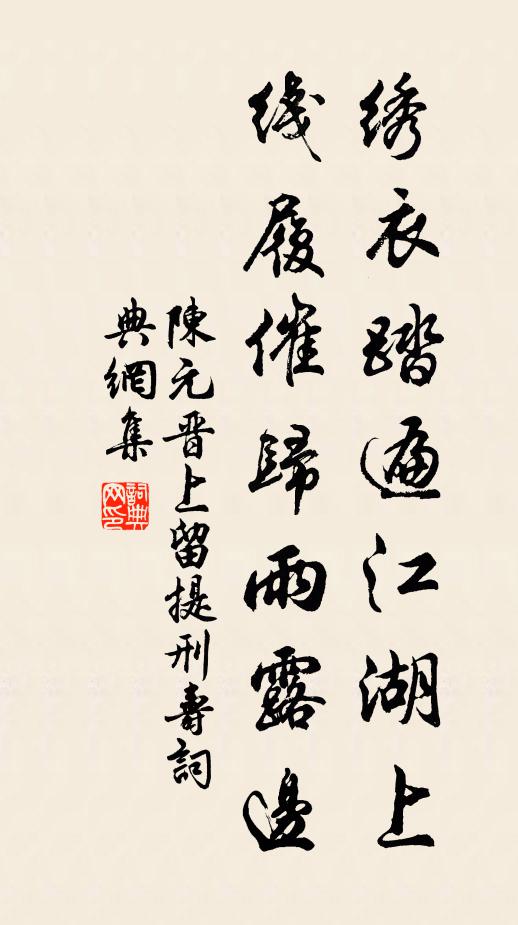 绣衣踏遍江湖上
线履催歸雨露邊
陳元晋上留提刑壽詞
典網集
詞典网印